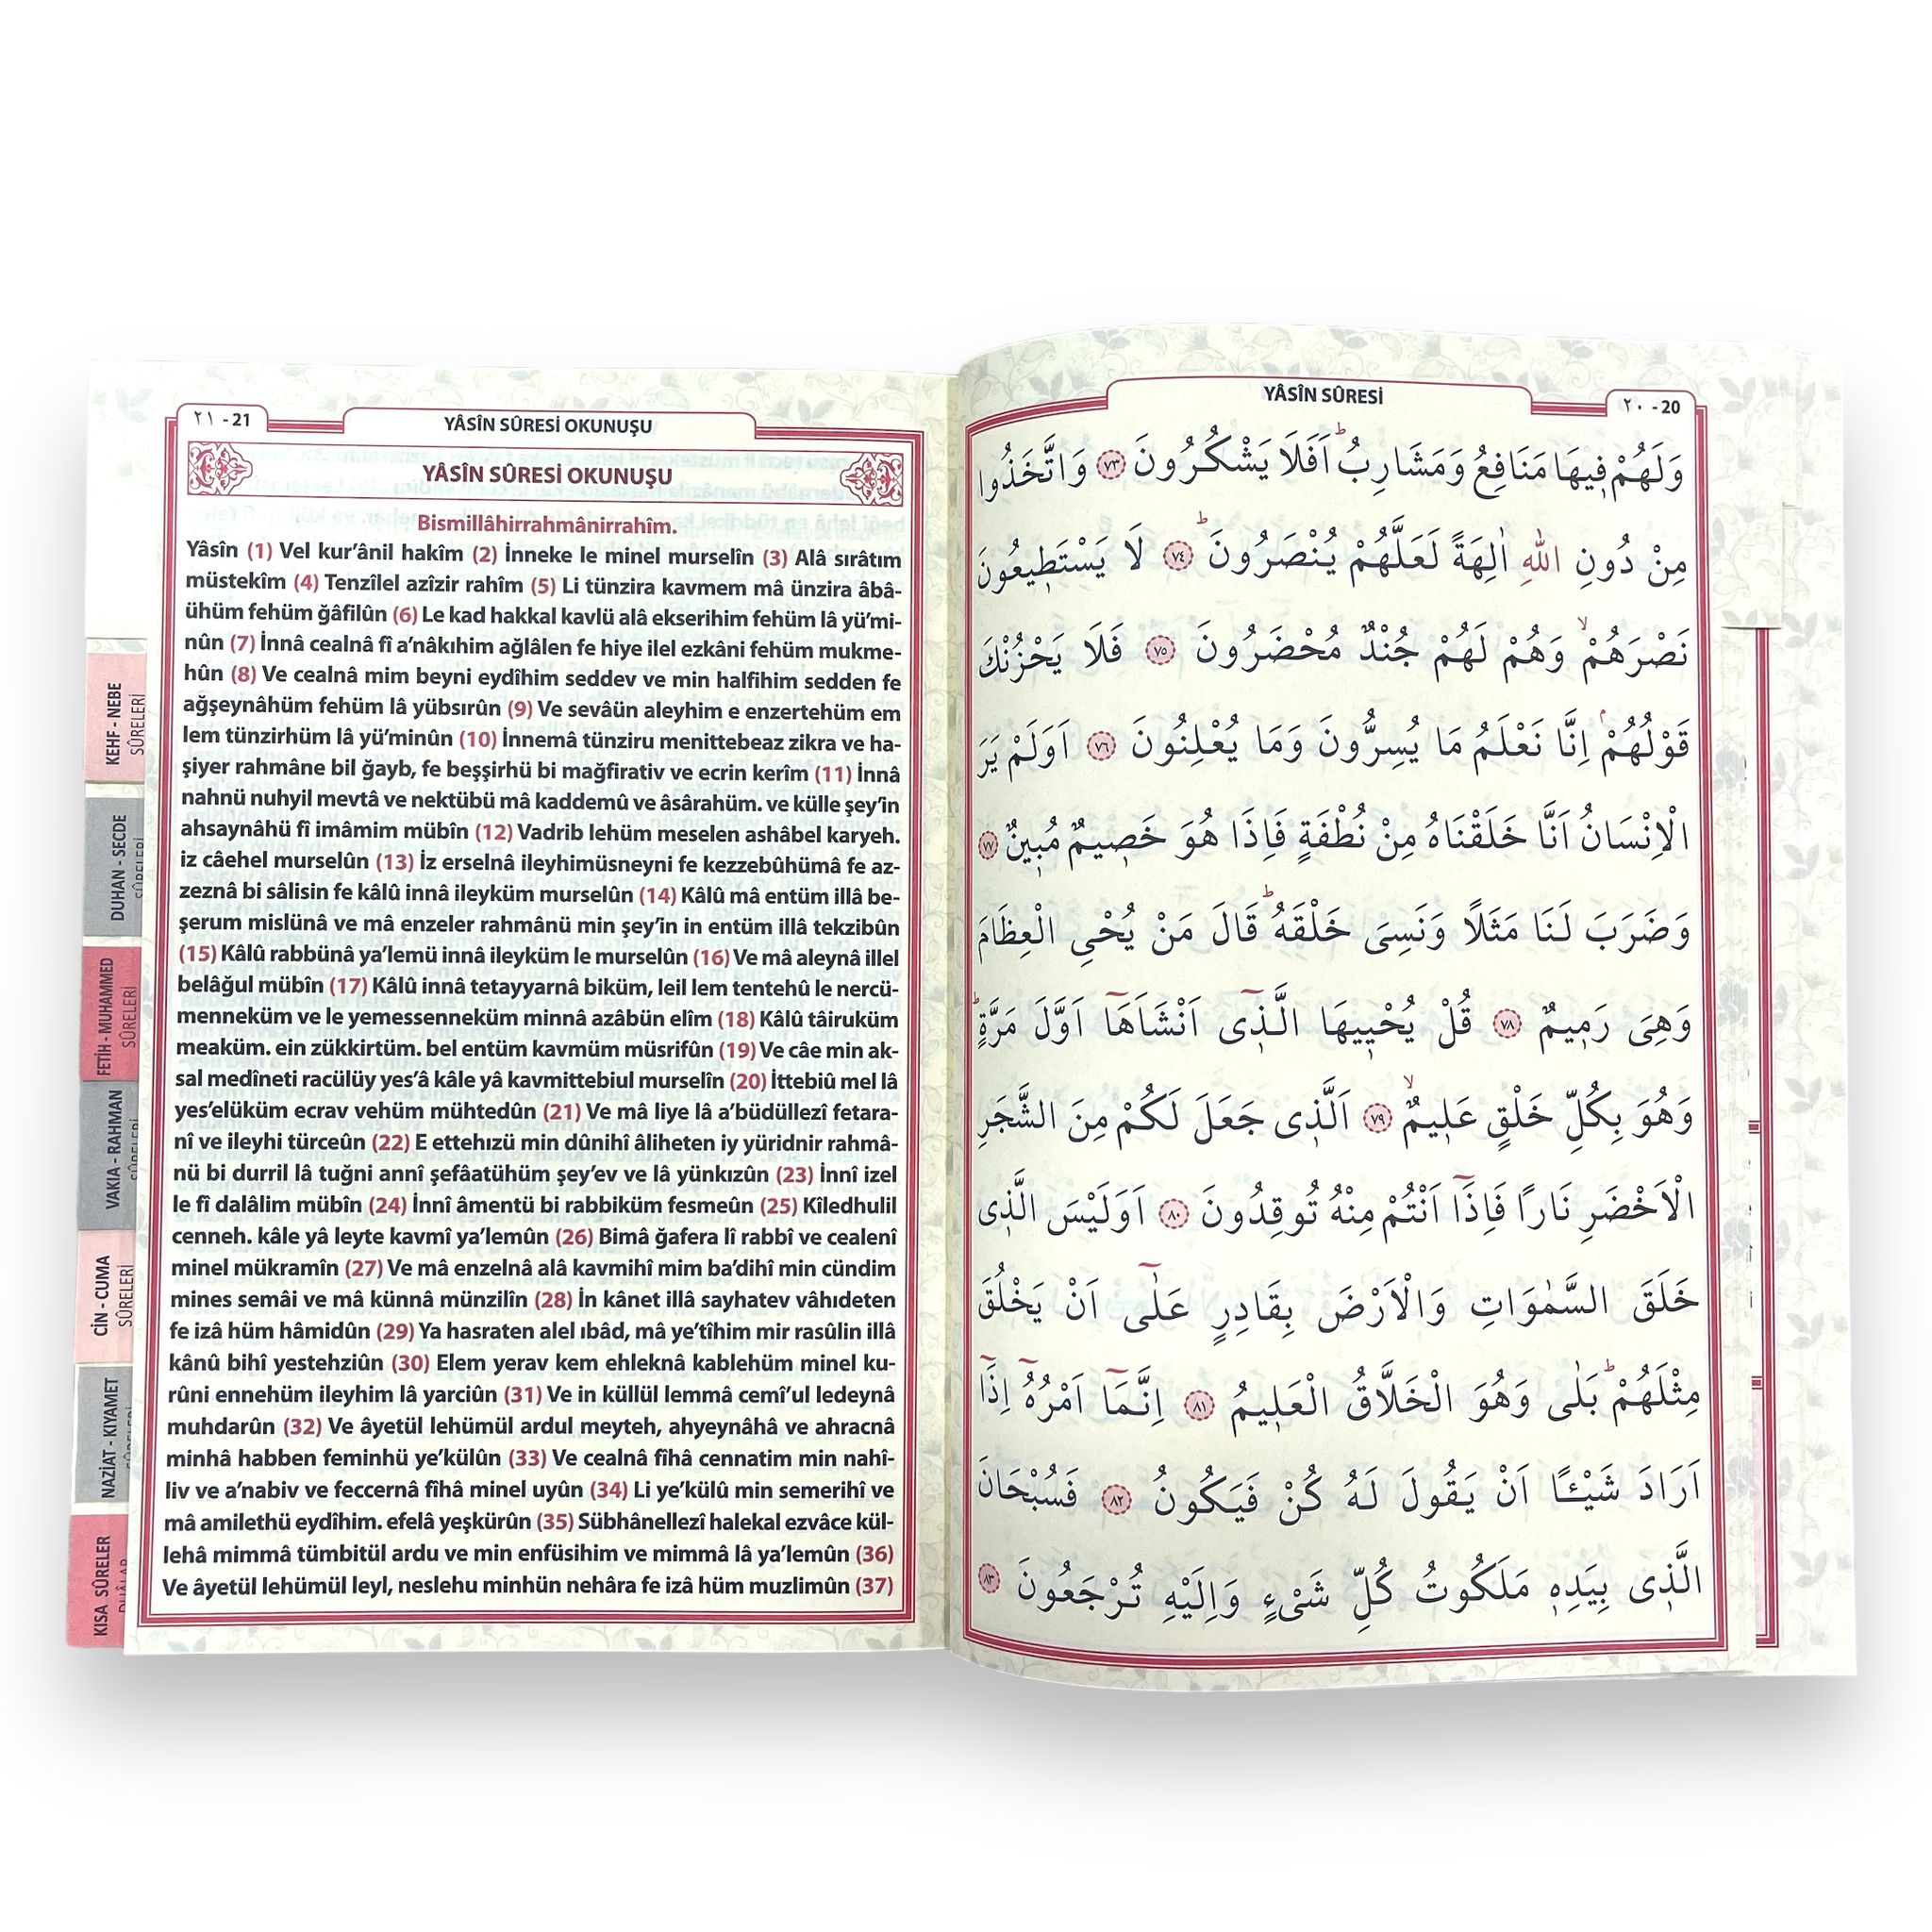 ٢٠ - 20
YÂSÎN SÛRESİ
وَلَهُمْ فِيهَا مَنَافِعُ وَمَشَارِبُ ۜ اَفَلَا يَشْكُرُونَ ﴿٧٣﴾ وَاتَّخَذُوا
مِنْ دُونِ اللّٰهِ اٰلِهَةً لَعَلَّهُمْ يُنْصَرُونَ ﴿٧٤﴾ لَا يَسْتَطِيعُونَ
نَصْرَهُمْ وَهُمْ لَهُمْ جُنْدٌ مُحْضَرُونَ ﴿٧٥﴾ فَلَا يَحْزُنْكَ
قَوْلُهُمْ اِنَّا نَعْلَمُ مَا يُسِرُّونَ وَمَا يُعْلِنُونَ ﴿٧٦﴾ اَوَلَمْ يَرَ
الْاِنْسَانُ اَنَّا خَلَقْنَاهُ مِنْ نُطْفَةٍ فَاِذَا هُوَ خَصِيمٌ مُبِينٌ ﴿٧٧﴾
وَضَرَبَ لَنَا مَثَلًا وَنَسِىَ خَلْقَهُ قَالَ مَنْ يُحْىِ الْعِظَامَ
وَهِىَ رَمِيمٌ ﴿٧٨﴾ قُلْ يُحْيِيهَا الَّذِٓى اَنْشَاَهَٓا اَوَّلَ مَرَّةٍ
وَهُوَ بِكُلِّ خَلْقٍ عَلِيمٌ ﴿٧٩﴾ اَلَّذِى جَعَلَ لَكُمْ مِنَ الشَّجَرِ
الْاَخْضَرِ نَارًا فَاِذَٓا اَنْتُمْ مِنْهُ تُوقِدُونَ ﴿٨٠﴾ اَوَلَيْسَ الَّذِى
خَلَقَ السَّمٰوَاتِ وَالْاَرْضَ بِقَادِرٍ عَلٰٓى اَنْ يَخْلُقَ
مِثْلَهُمْ بَلٰى وَهُوَ الْخَلَّاقُ الْعَلِيمُ ﴿٨١﴾ اِنَّمَٓا اَمْرُهُٓ اِذَٓا
اَرَادَ شَيْـًٔا اَنْ يَقُولَ لَهُ كُنْ فَيَكُونُ ﴿٨٢﴾ فَسُبْحَانَ
الَّذِى بِيَدِهِ مَلَكُوتُ كُلِّ شَىْءٍ وَاِلَيْهِ تُرْجَعُونَ ﴿٨٣﴾
٢١ - 21
YÂSÎN SÛRESİ OKUNUŞU
YÂSÎN SÛRESİ OKUNUŞU
Bismillâhirrahmânirrahîm.
Yâsîn (1) Vel kur’ânil hakîm (2) İnneke le minel murselîn (3) Alâ sırâtım
müstekîm (4) Tenzîlel azîzir rahîm (5) Li tünzira kavmem mâ ünzira âbâ-
ühüm fehüm ğâfilûn (6) Le kad hakkal kavlü alâ ekserihim fehüm lâ yü’mi-
nûn (7) İnnâ cealnâ fî a’nâkıhim ağlâlen fe hiye ilel ezkâni fehüm mukme-
hûn (8) Ve cealnâ mim beyni eydîhim seddev ve min halfihim sedden fe
ağşeynâhüm fehüm lâ yübsırûn (9) Ve sevâün aleyhim e enzertehüm em
lem tünzirhüm lâ yü’minûn (10) İnnemâ tünziru menittebeaz zikra ve ha-
şiyer rahmâne bil ğayb, fe beşşirhü bi mağfirativ ve ecrin kerîm (11) İnnâ
nahnü nuhyil mevtâ ve nektübü mâ kaddemû ve âsârahüm. ve külle şey’in
ahsaynâhü fî imâmim mübîn (12) Vadrib lehüm meselen ashâbel karyeh.
iz câehel murselûn (13) İz erselnâ ileyhimüsneyni fe kezzebûhümâ fe az-
zeznâ bi sâlisin fe kâlû innâ ileyküm murselûn (14) Kâlû mâ entüm illâ be-
şerum mislünâ ve mâ enzeler rahmânü min şey’in in entüm illâ tekzibûn
(15) Kâlû rabbünâ ya’lemü innâ ileyküm le murselûn (16) Ve mâ aleynâ illel
belâğul mübîn (17) Kâlû innâ tetayyarnâ biküm, leil lem tentehû le nercü-
menneküm ve le yemessenneküm minnâ azâbün elîm (18) Kâlû tâiruküm
meaküm. ein zükkirtüm. bel entüm kavmüm müsrifûn (19) Ve câe min ak-
sal medîneti racülüy yes’â kâle yâ kavmittebiul murselîn (20) İttebiû mel lâ
yes’elüküm ecrav vehüm mühtedûn (21) Ve mâ liye lâ a’büdüllezî fetara-
nî ve ileyhi türceûn (22) E ettehızü min dûnihî âliheten iy yüridnir rahmâ-
nü bi durril lâ tuğni annî şefâatühüm şey’ev ve lâ yünkızûn (23) İnnî izel
le fî dalâlim mübîn (24) İnnî âmentü bi rabbiküm fesmeûn (25) Kîledhulil
cenneh. kâle yâ leyte kavmî ya’lemûn (26) Bimâ ğafera lî rabbî ve cealenî
minel mükramîn (27) Ve mâ enzelnâ alâ kavmihî mim ba’dihî min cündim
mines semâi ve mâ künnâ münzilîn (28) İn kânet illâ sayhatev vâhıdeten
fe izâ hüm hâmidûn (29) Ya hasraten alel ıbâd, mâ ye’tîhim mir rasûlin illâ
kânû bihî yestehziûn (30) Elem yerav kem ehleknâ kablehüm minel ku-
rûni ennehüm ileyhim lâ yarciûn (31) Ve in küllül lemmâ cemî’ul ledeynâ
muhdarûn (32) Ve âyetül lehümül ardul meyteh, ahyeynâhâ ve ahracnâ
minhâ habben feminhü ye’külûn (33) Ve cealnâ fîhâ cennatim min nahî-
liv ve a’nabiv ve feccernâ fîhâ minel uyûn (34) Li ye’külû min semerihî ve
mâ amilethü eydîhim. efelâ yeşkürûn (35) Sübhânellezî halekal ezvâce kül-
lehâ mimmâ tümbitül ardu ve min enfüsihim ve mimmâ lâ ya’lemûn (36)
Ve âyetül lehümül leyl, neslehu minhün nehâra fe izâ hüm muzlimûn (37)
KEHF - NEBE
SÛRELERİ
DUHAN - SECDE
SÛRELERİ
FETİH - MUHAMMED
SÛRELERİ
VAKIA - RAHMAN
CİN - CUMA
SÛRELERİ
NAZİAT - KIYAMET
KISA SÛRELER